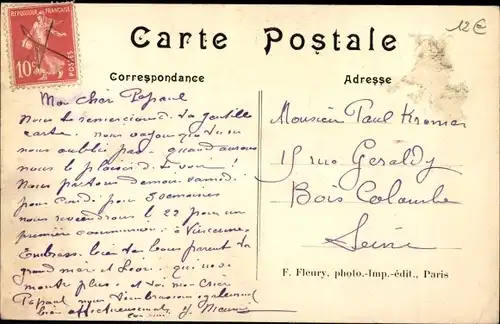 RÉPUBLIQUE FRANÇAISE
10c
POSTES
12€
Carte Postale
Correspondance
Adresse
Mon Cher Popaul
Nous te remercions de ta gentille
carte. nous voyons que tu ne
nous oublie pas. quand aurons
nous le plaisir de te voir!
Nous partons demain samedi
pour pour 3 semaines
nous reviendrons le 22 pour un
première communion à Vincennes
Embrasse bien tes bons parents ta
grand mère et qui nous
plus. et toi mon Cher
Popaul nous t'embrassons également
bien affectueusement
Monsieur Paul Kremer
15 rue Geraldy
Bois Colombe
Seine
F. Fleury, photo.-Imp.-édit., Paris